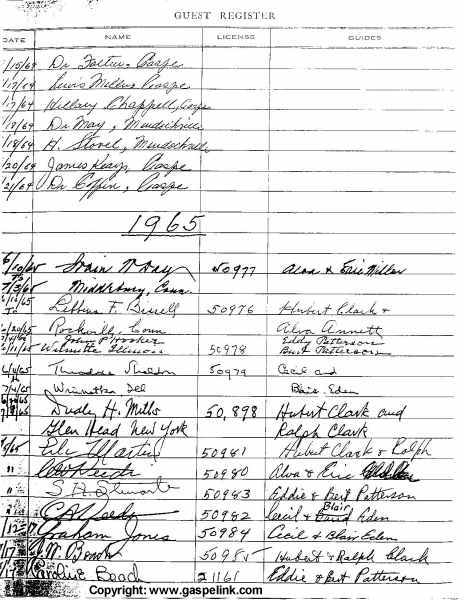 GUEST REGISTER
DATE NAME LICENSE GUIDES
/15/64 Dr Gaspe
/17/64 Lewis Miller Gaspe
/17/64 Hillary Chappell, Gaspe
/18/64 Dr May, Murdochville
/18/64 H. Stovel, Murdochville
/20/64 James Keays, Gaspe
/21/64 Dr Coffin, Gaspe
1965
6/10/65 W Day 50977 Alva & Eric Miller
To
7/3/65 Middlebury, Conn.
F. Bissell 50976 Hubert Clark &
To
Rockville, Conn Alva Annett
John P Hooker Eddy Patterson
Wilmette Illinois 50978 Burt Patterson
Theodore Sheldon 50979 Cecil and
7/4/65 Del Blair Eden
Dudley H. Mills 50,898 Hubert Clark and
Glen Head New York Ralph Clark
/65 Martin 50981 Hubert Clark & Ralph
" 50980 Alva & Eric
" S. H. 50983 Eddie & Bert Patterson
" 50982 Cecil & Blair Eden
Graham Jones 50984 Cecil & Blair Eden
/17 W. 50985 Hubert & Ralph Clark
Caroline Beach 21161 Eddie & Burt Patterson
Copyright: www.gaspelink.com